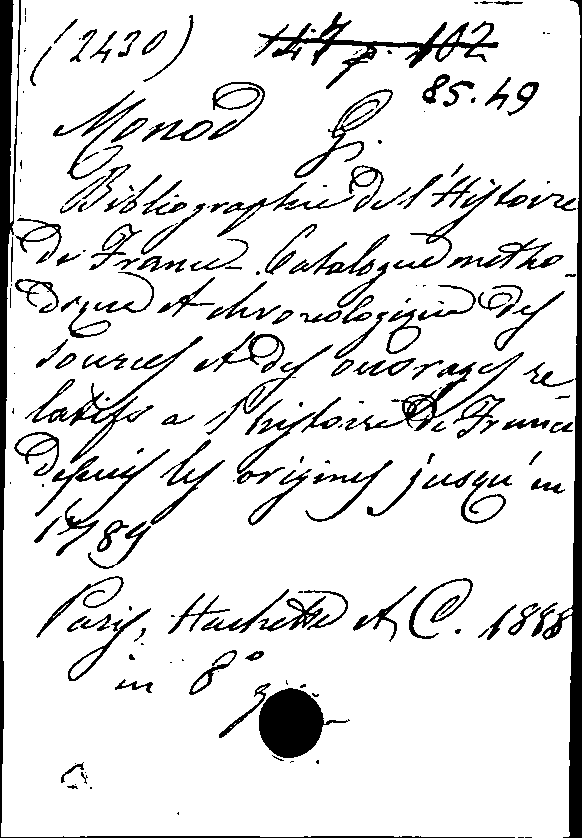 (2430) 147 p. 102
85.49
Monod G.
Bibliographie de l'Histoire
de France. Catalogue métho-
dique et chronologique des
sources et des ouvrages re-
latifs a l'histoire de France
depuis les origines jusqu'en
1789
Paris, Hachette et C. 1888
in 8°